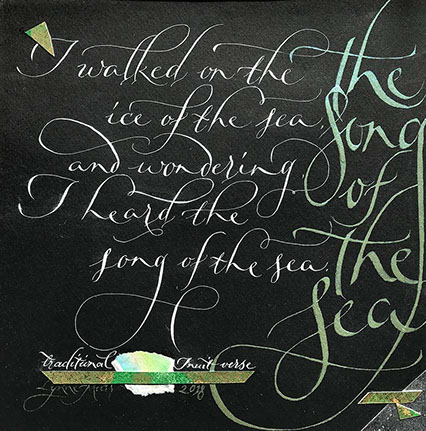 I walked on the
ice of the sea,
and wondering,
I heard the
song of the sea.
the
song
of
the
sea
traditional Inuit verse
2018